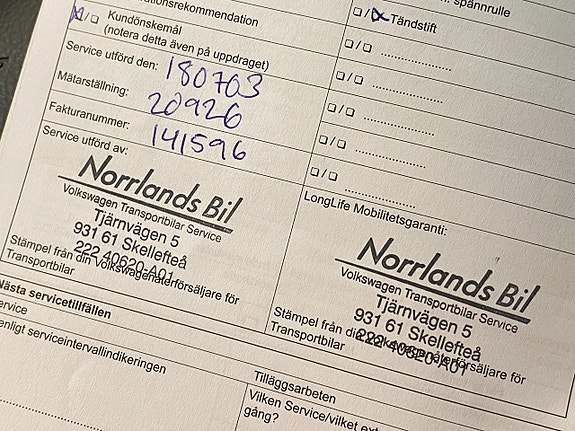 rekommendation
/ Kundönskemål
(notera detta även på uppdraget)
Service utförd den: 180703
Mätarställning: 20926
Fakturanummer: 141596
Service utförd av:
Norrlands Bil
Volkswagen Transportbilar Service
Tjärnvägen 5
931 61 Skellefteå
222 40620-A01
Stämpel från din Volkswagenåterförsäljare för
Transportbilar
Nästa servicetillfällen
enligt serviceintervallindikeringen
spännrulle
❑/ Tändstift
❑/❑ ....................
❑/❑ ....................
❑/❑ ....................
❑/❑ ....................
❑/❑ ....................
LongLife Mobilitetsgaranti:
Norrlands Bil
Volkswagen Transportbilar Service
Tjärnvägen 5
931 61 Skellefteå
222 40620-A01
Stämpel från din Volkswagenåterförsäljare för
Transportbilar
Tilläggsarbeten
Vilken Service/vilket
gång?